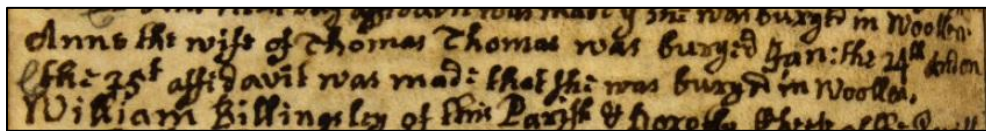 affidavit was made yt she was buryed in Woollen.
Anne the wife of Thomas Thomas was buryed Jan: the 24th
the 25t affidavit was made that she was buryed in Woollen.
William Billingsley of this Parish & Dorothy